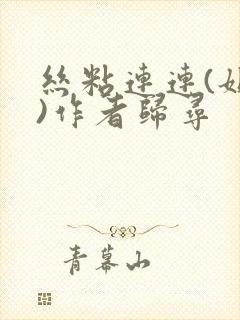 絲粘連連(
)作者歸尋
青幕山